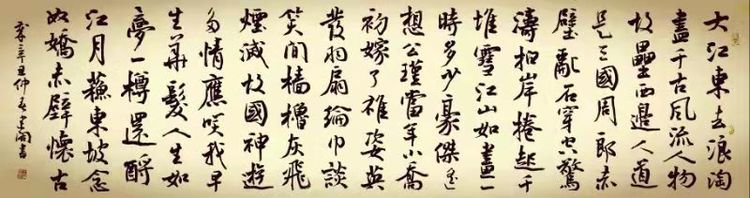 大江東去浪淘
盡千古風流人物
故壘西邊人道
是三國周郎赤
壁亂石穿空驚
濤拍岸捲起千
堆雪江山如畫一
時多少豪傑遙
想公瑾當年小喬
初嫁了雄姿英
發羽扇綸巾談
笑間檣櫓灰飛
煙滅故國神遊
多情應笑我早
生華髮人生如
夢一樽還酹
江月蘇東坡念
奴嬌赤壁懷古
歲辛丑仲春書